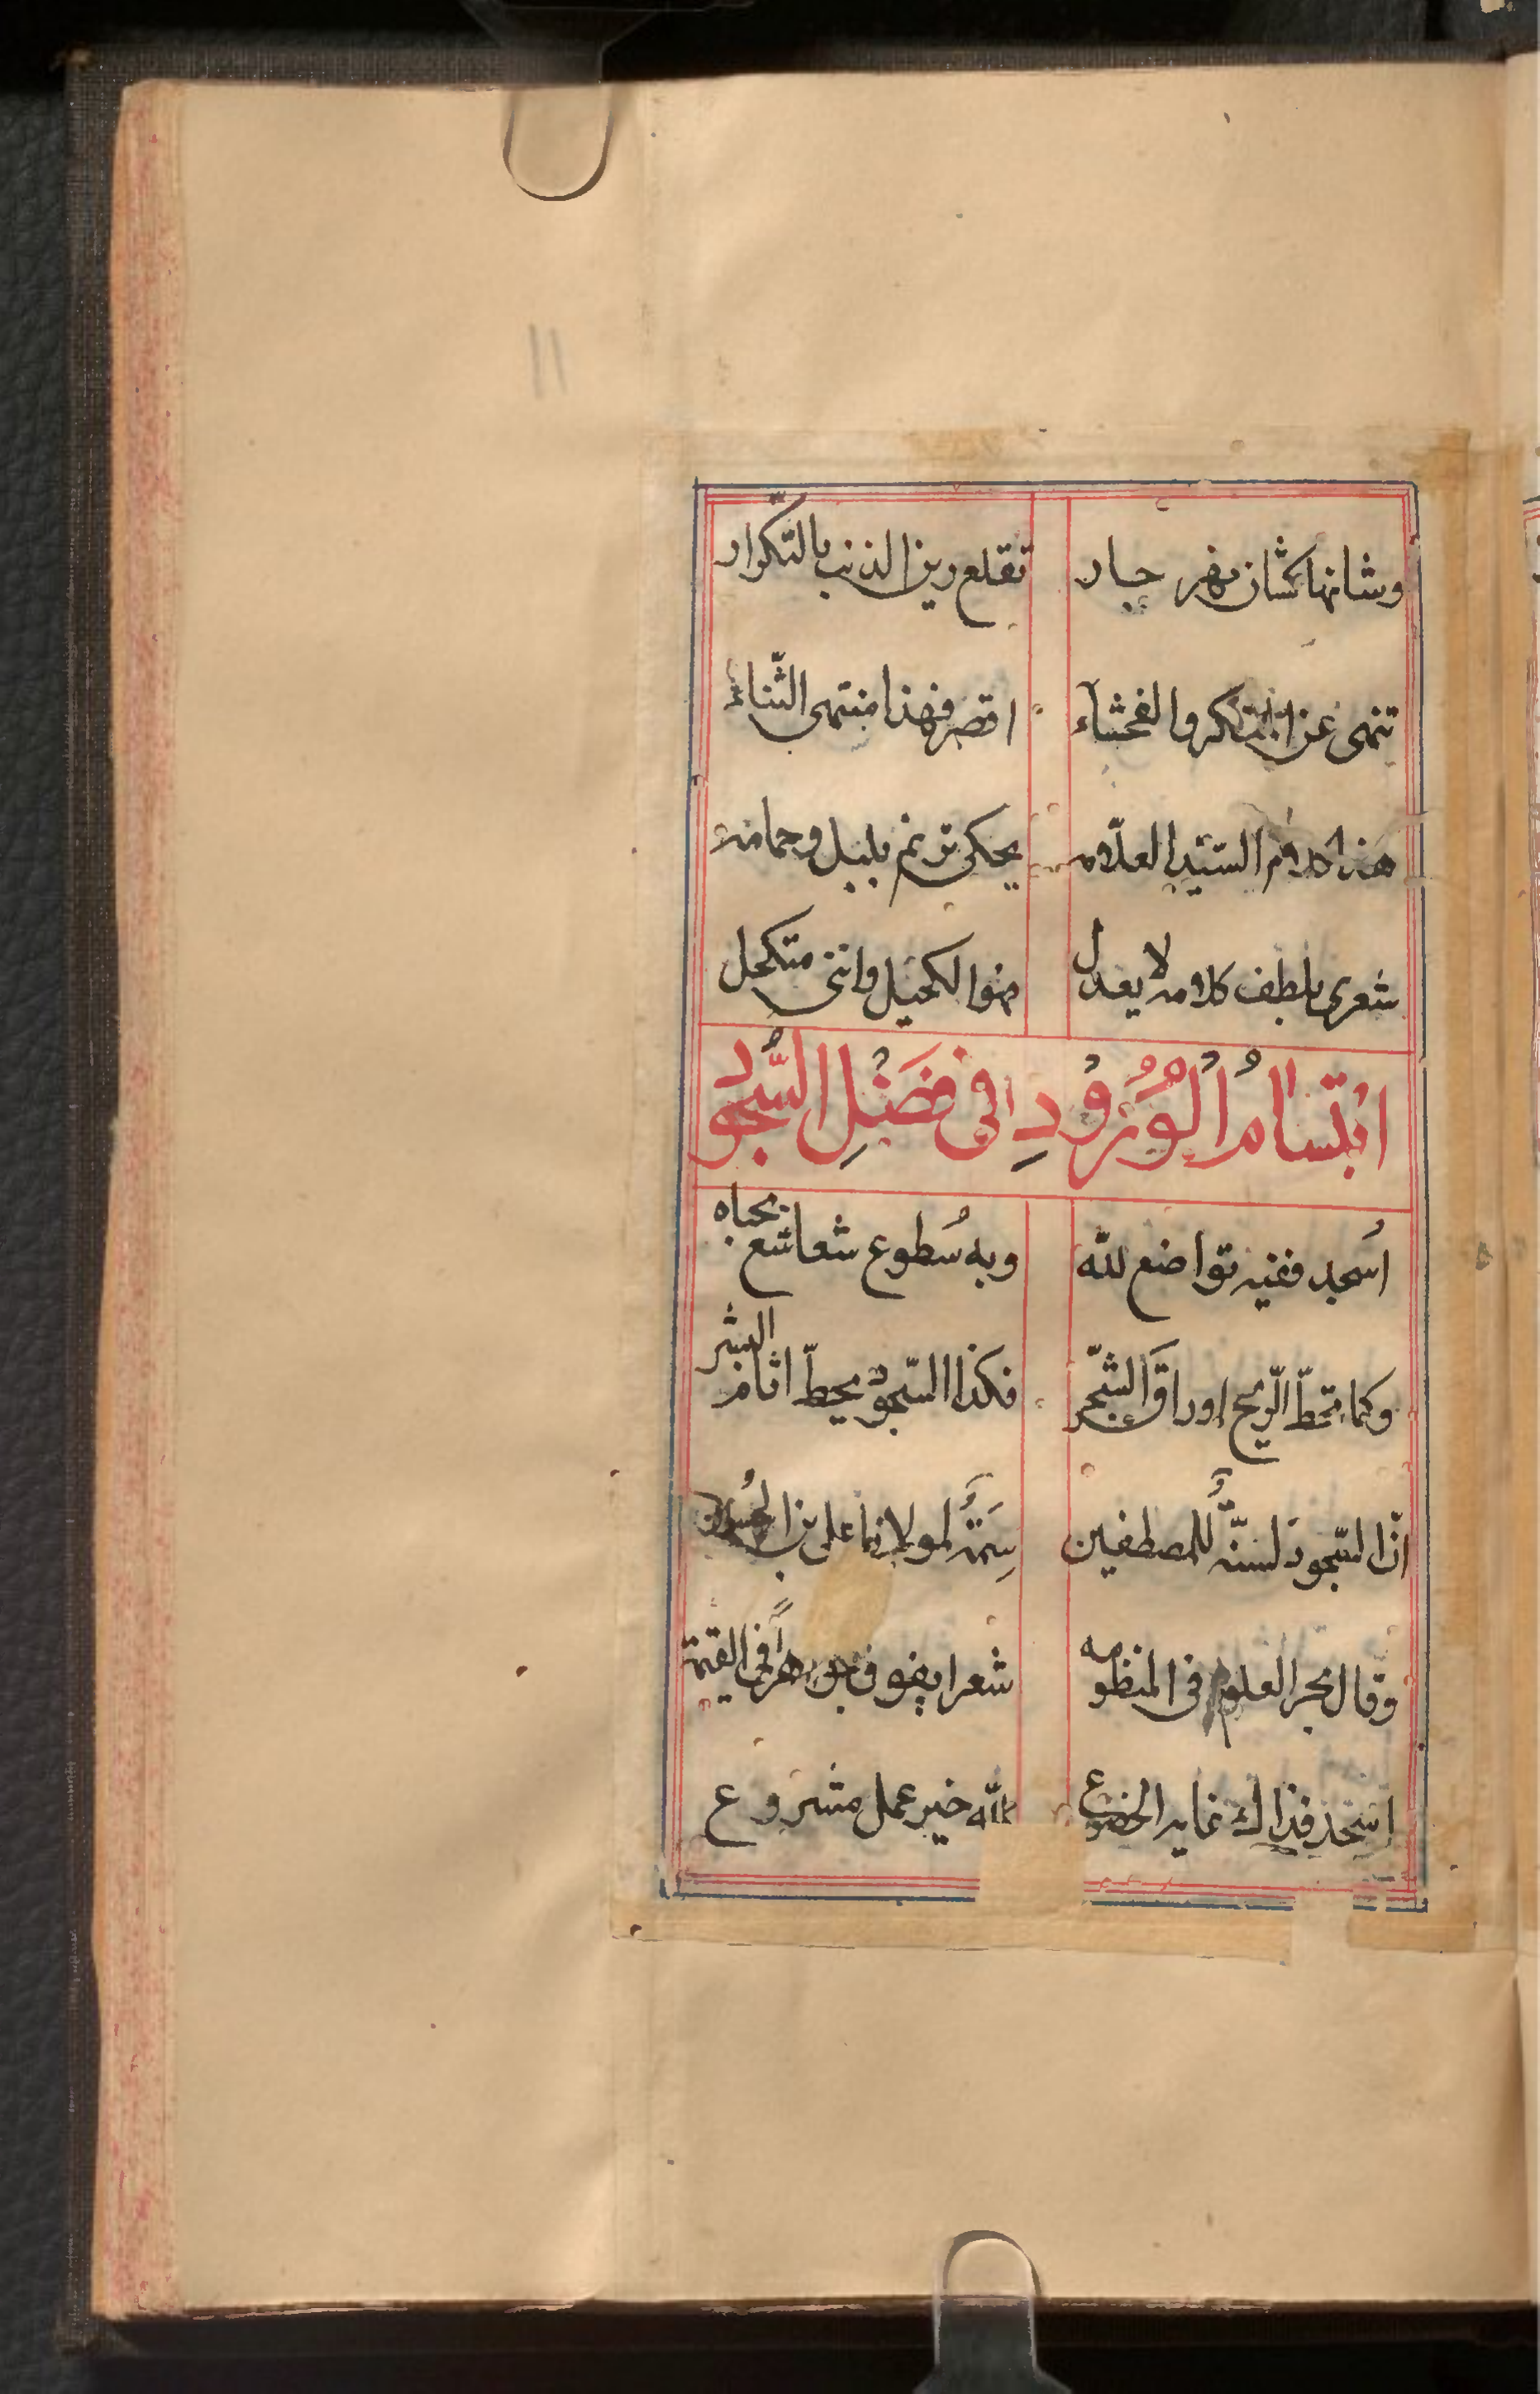 وشانها كشان نهر جار تقلع رين الذنب بالتكرار
تنهى عن المنكر والفحشآء اقصر فهذا منتهى الثّناء
هذا كلام السيّد العلّامه يحكى ترنم بلبل وحمامه
شعرى بلطف كلامه لا يعدل هو الكحيل واننى متكحل
ابْتسامُ الْوُرُوْدِ فى فَضْلِ السُّجُود
اُسجد ففيه تواضع لله وبه سُطوع شعاشع بجباه
وكما تحطّ الرّيح اوراقَ الشّجر فكذا السّجودُ يحطّ اثام البشر
انّ السّجودَ لسنّةٌ للمصطفين سِمَةٌ لمولانا على بن الحُسين
وقال بحر العلوم فى المنظومه شعرا يفوق جوهراً فى القيمة
اسْجد فذاك غاية الخضوع لله خير عمل مشروع
11